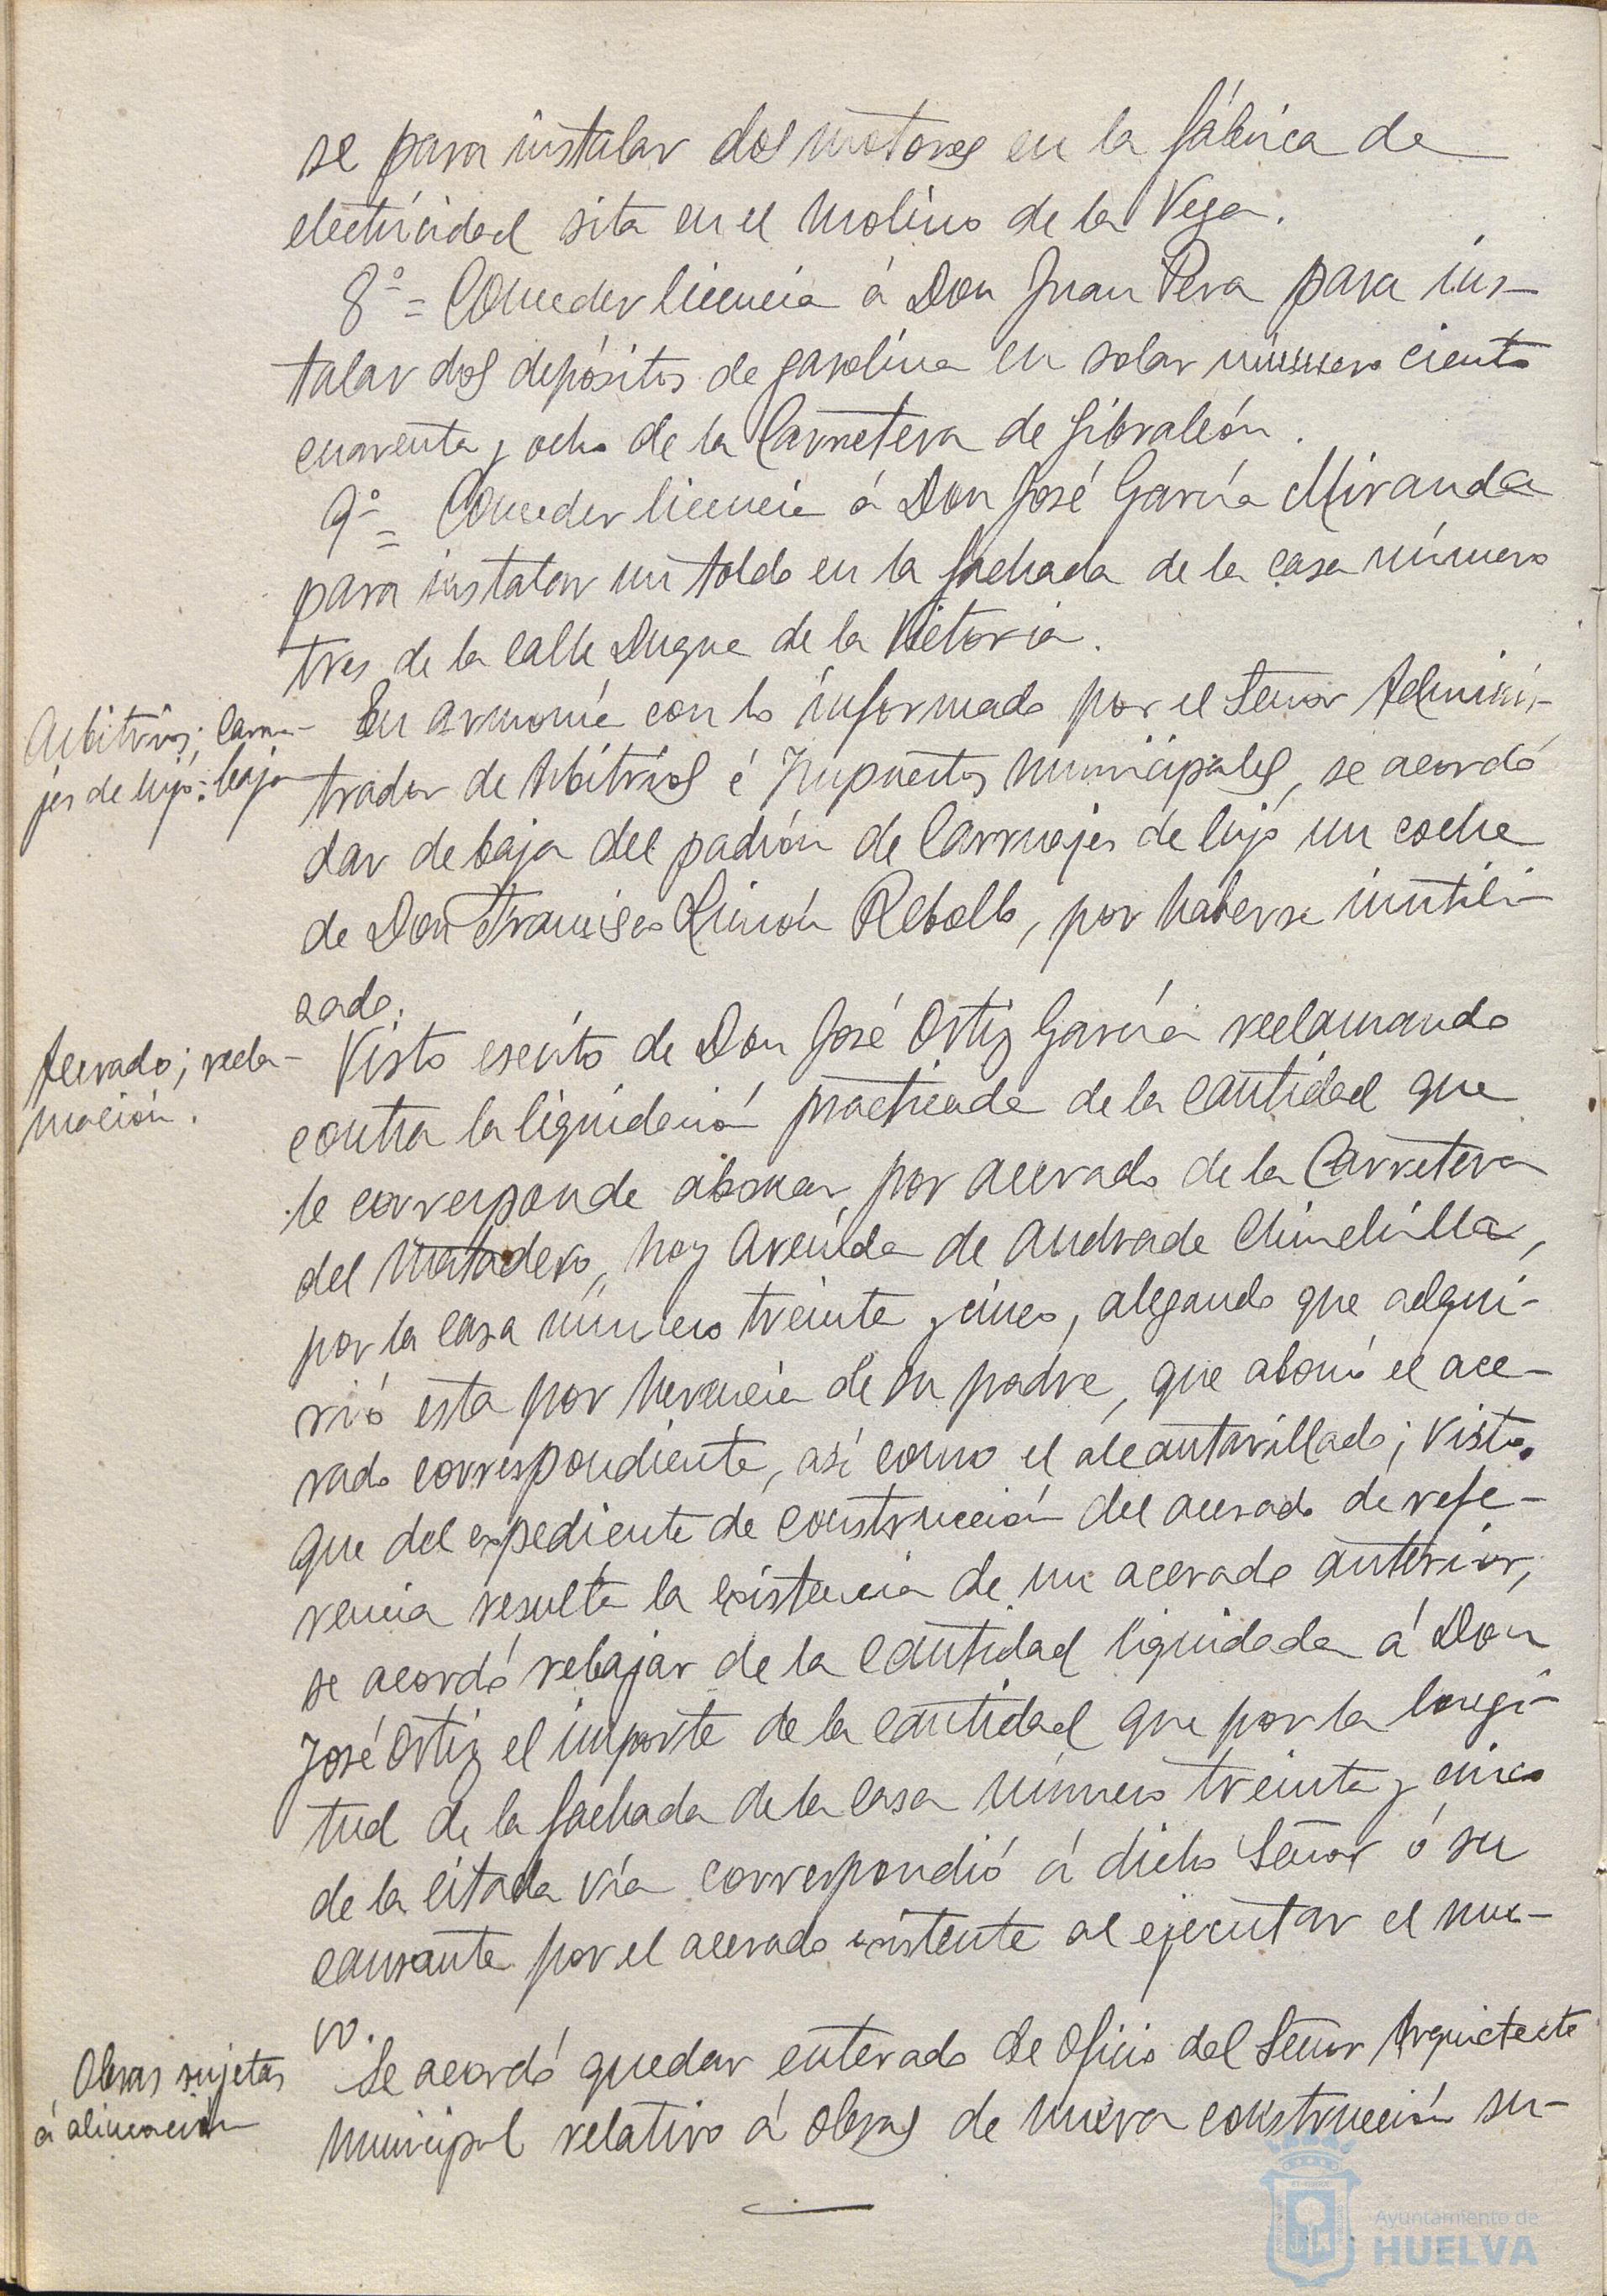 se para instalar dos motores en la fábrica de
electricidad sita en el Molino de la Vega.
8º = Conceder licencia á Don Juan Pera para ins-
talar dos depósitos de gasolina en solar número ciento
cuarenta y ocho de la Carretera de Gibraleón.
9º = Conceder licencia á Don José García Miranda
para instalar un toldo en la fachada de la casa número
tres de la calle Duque de la Victoria.
Arbitrios; Carrua-
jes de lujo: baja
En armonía con lo informado por el Señor Adminis-
trador de Arbitrios é Impuestos municipales, se acordó
dar de baja del padrón de Carruajes de lujo un coche
de Don Francisco Rincón Rebollo, por haberse inutili-
zado.
Acerado; recla-
mación.
Visto escrito de Don José Ortiz García reclamando
contra la liquidación practicada de la cantidad que
le corresponde abonar, por acerado de la Carretera
del Matadero, hoy Avenida de Andrade Chinchilla,
por la casa número treinta y cinco, alegando que adqui-
rió esta por herencia de su padre, que abonó el ace-
rado correspondiente, así como el alcantarillado; visto
que del expediente de construcción del acerado de refe-
rencia resulta la existencia de un acerado anterior,
se acordó rebajar de la cantidad liquidada á Don
José Ortiz el importe de la cantidad que por la longi-
tud de la fachada de la casa número treinta y cinco
de la citada vía correspondió á dicho Señor ó su
causante por el acerado existente al ejecutar el nue-
vo.
Obras sujetas
á alineación
Se acordó quedar enterado de oficio del Señor Arquitecto
municipal relativo á obras de nueva construcción su-
Ayuntamiento de
HUELVA